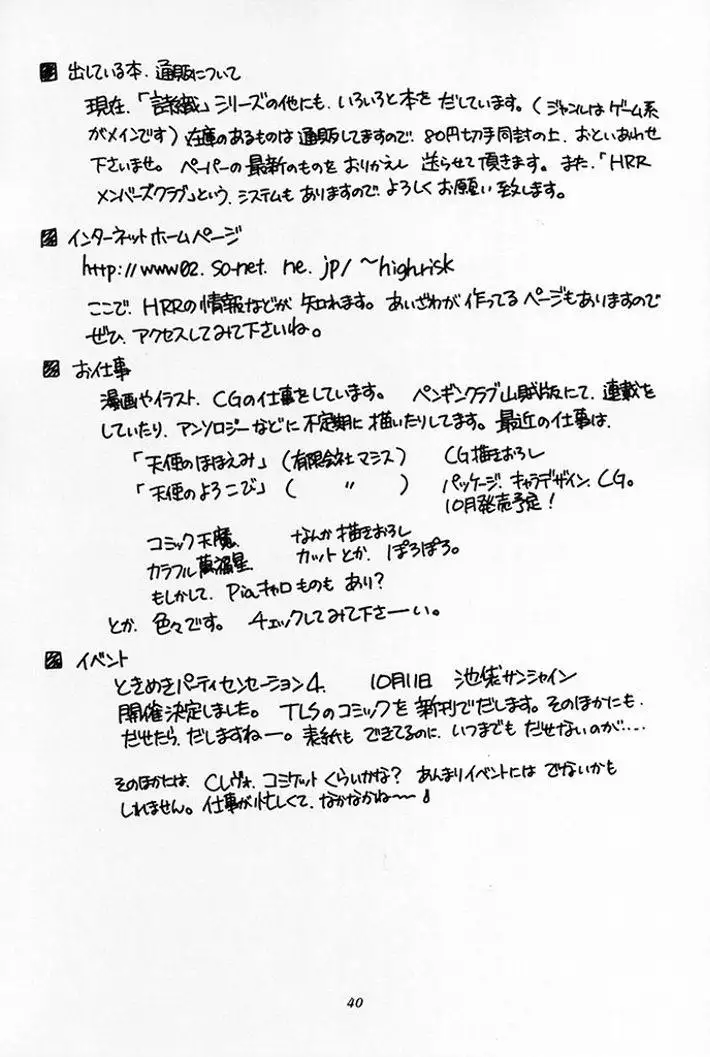 出している本、通販について
現在、「詩織」シリーズの他にも、いろいろと本を だしています。(ジャンルは ゲーム系
がメインです) 在庫のあるものは 通販してますので、80円切手同封の上、おといあわせ
下さいませ。 ペーパーの 最新のものを おりかえし 送らせて頂きます。 また、「HRR
メンバーズクラブ」という、システムも ありますので、よろしくお願い致します。
インターネットホームページ
http://www02.so-net.ne.jp/~highrisk
ここで、HRRの情報などが 知れます。あいざわが作ってるページもありますので
ぜひ、アクセスしてみて下さいね。
お仕事
漫画やイラスト、CGの仕事をしています。 ペンギンクラブ山賊版にて、連載を
していたり、アンソロジーなどに不定期に描いたりしてます。最近の仕事は、
「天使のほほえみ」(有限会社マシス) CG描きおろし
「天使のよろこび」( 〃 ) パッケージ、キャラデザイン、CG。
10月発売予定!
コミック天魔、 なんか描きおろし
カラフル萬福星 カットとか、ぽろぽろ。
もしかして、Piaキャロものも あり?
とか、色々です。 チェックしてみて下さーい。
イベント
ときめきパーティセンセーション4、 10月11日 池袋サンシャイン
開催決定しました。 TLSのコミックを新刊でだします。そのほかにも、
だせたら、だしますねー。表紙も できてるのに、いつまでも だせないのが‥‥
そのほかには、Cレヴォ、コミケット くらいかな? あんまりイベントには でないかも
しれません。仕事が忙しくて、なかなかね〜〜♪
40